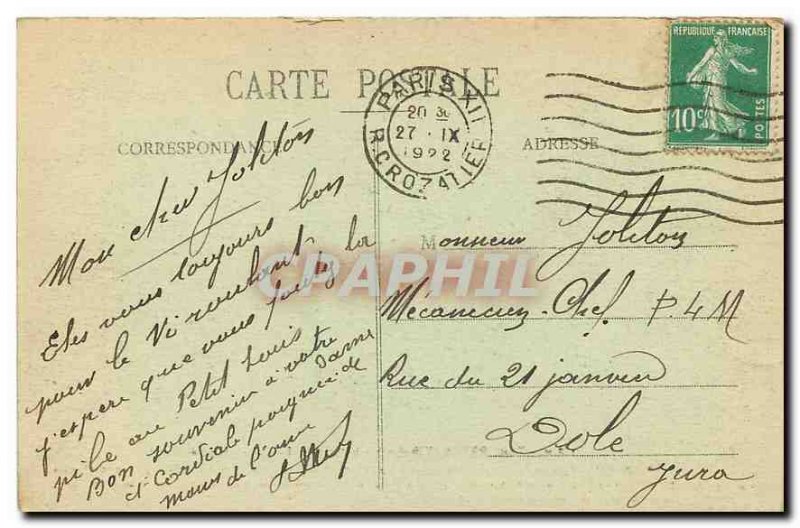 CARTE POSTALE
CORRESPONDANCE
ADRESSE
RÉPUBLIQUE FRANÇAISE
10c
POSTES
PARIS XII
20 30
27 · IX
1922
R. CROZATIER
CPARAPHIL
Mon cher
Etes vous toujours bon
pour le Vi roulant
j'espère que vous foutez la
pile au Petit Louis
Bon souvenir à votre dame
et Cordiale poignée de
mains de l'ami
Monsieur
Mécanicien-Chef P.L.M
Rue du 21 janvier
Dole
Jura